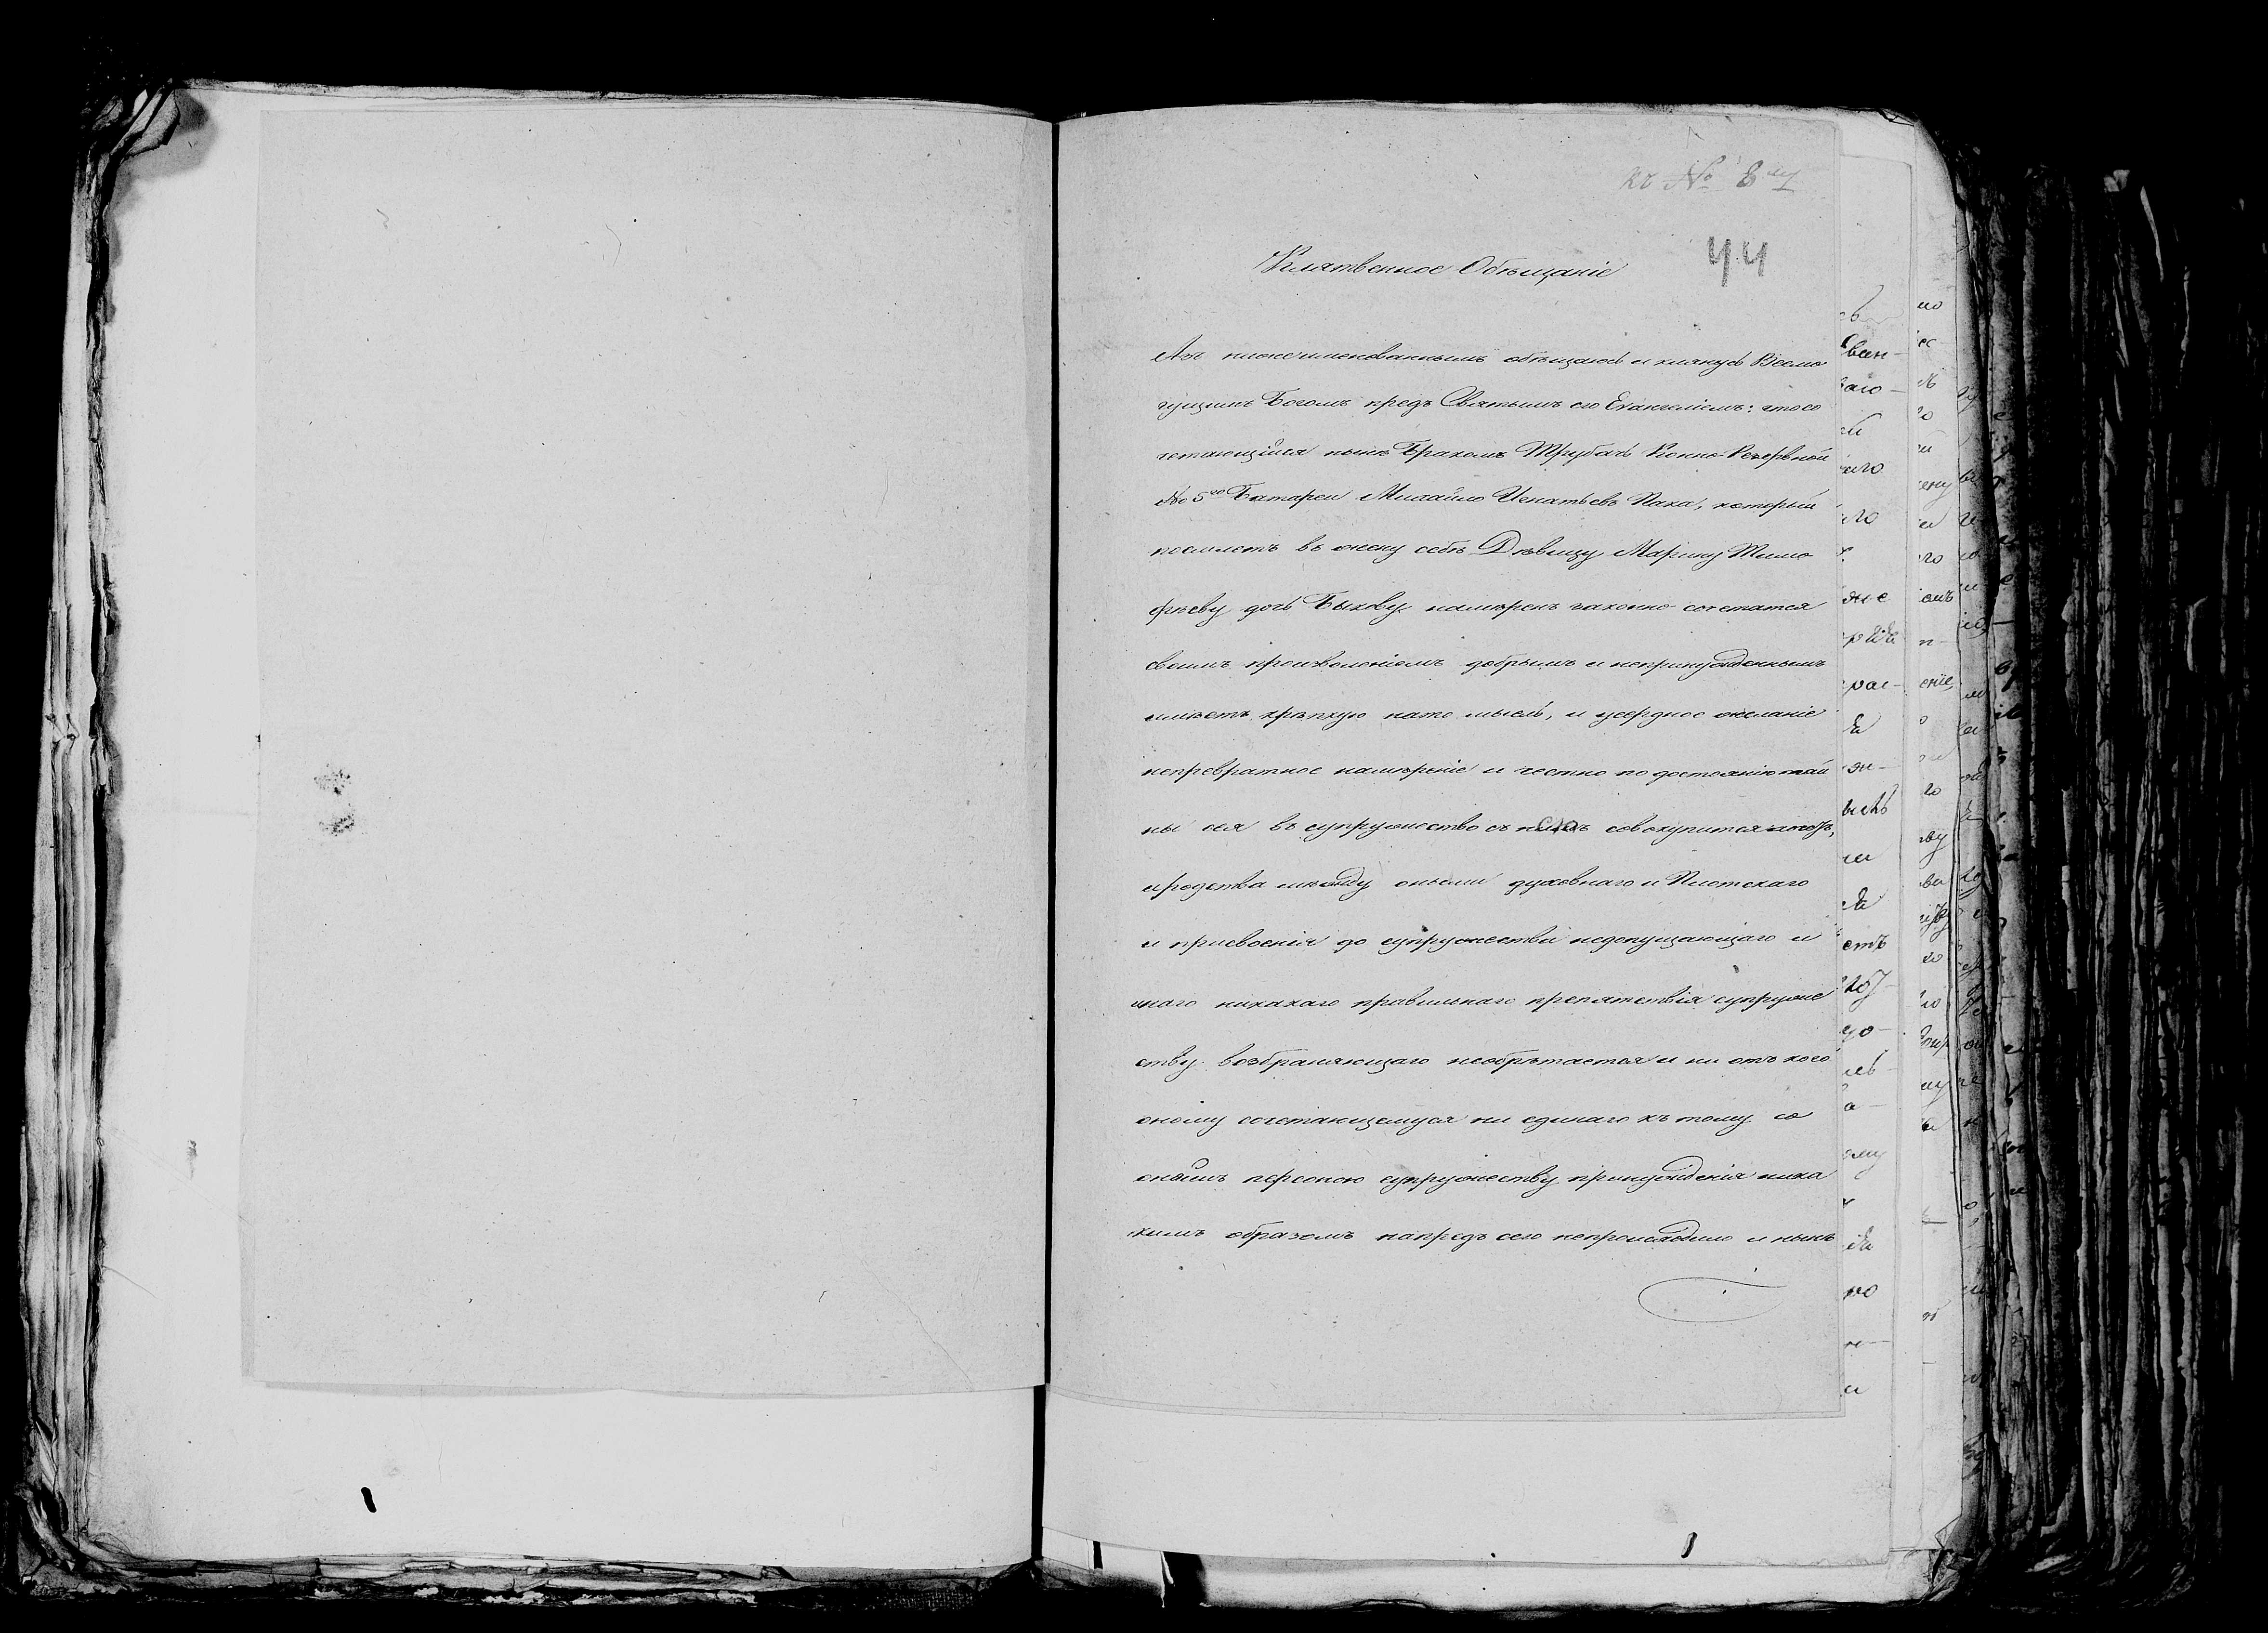 къ № 8му
44
Клятвенное Обѣщаніе
Азъ нижеимянованнымъ обѣщаюсь и клянусь Всемо
гущимъ Богомъ предъ Святымъ его Евангеліемъ: что со
четающійся нынѣ Бракомъ Трубачь Конно-Резервной
№ 5го Батареи Михайло Игнатьевъ Паха, который
поемлетъ въ жену себѣ Дѣвицу Марину Тимо
фѣеву дочь Быкову намѣренъ законно сочетатся
своимъ произволеніемъ добрымъ и непринужденнымъ
имѣетъ крѣпкую нато мысль, и усердное желаніе
непревратное намѣреніе и честно по достоянію тай
ны сея въ супружество съ нею совокупится
и родства между оными духовнаго и Плотскаго
и присвоенія до супружества недопущающаго и
инаго никакаго правильнаго препятствія супруже
ству возбраняющаго необрѣтается и ни отъ кого
оному сочетающемуся ни единаго къ тому со
онымъ персоною супружеству принужденія ника
кимъ образомъ напредъ сего непроисходило и нынѣ